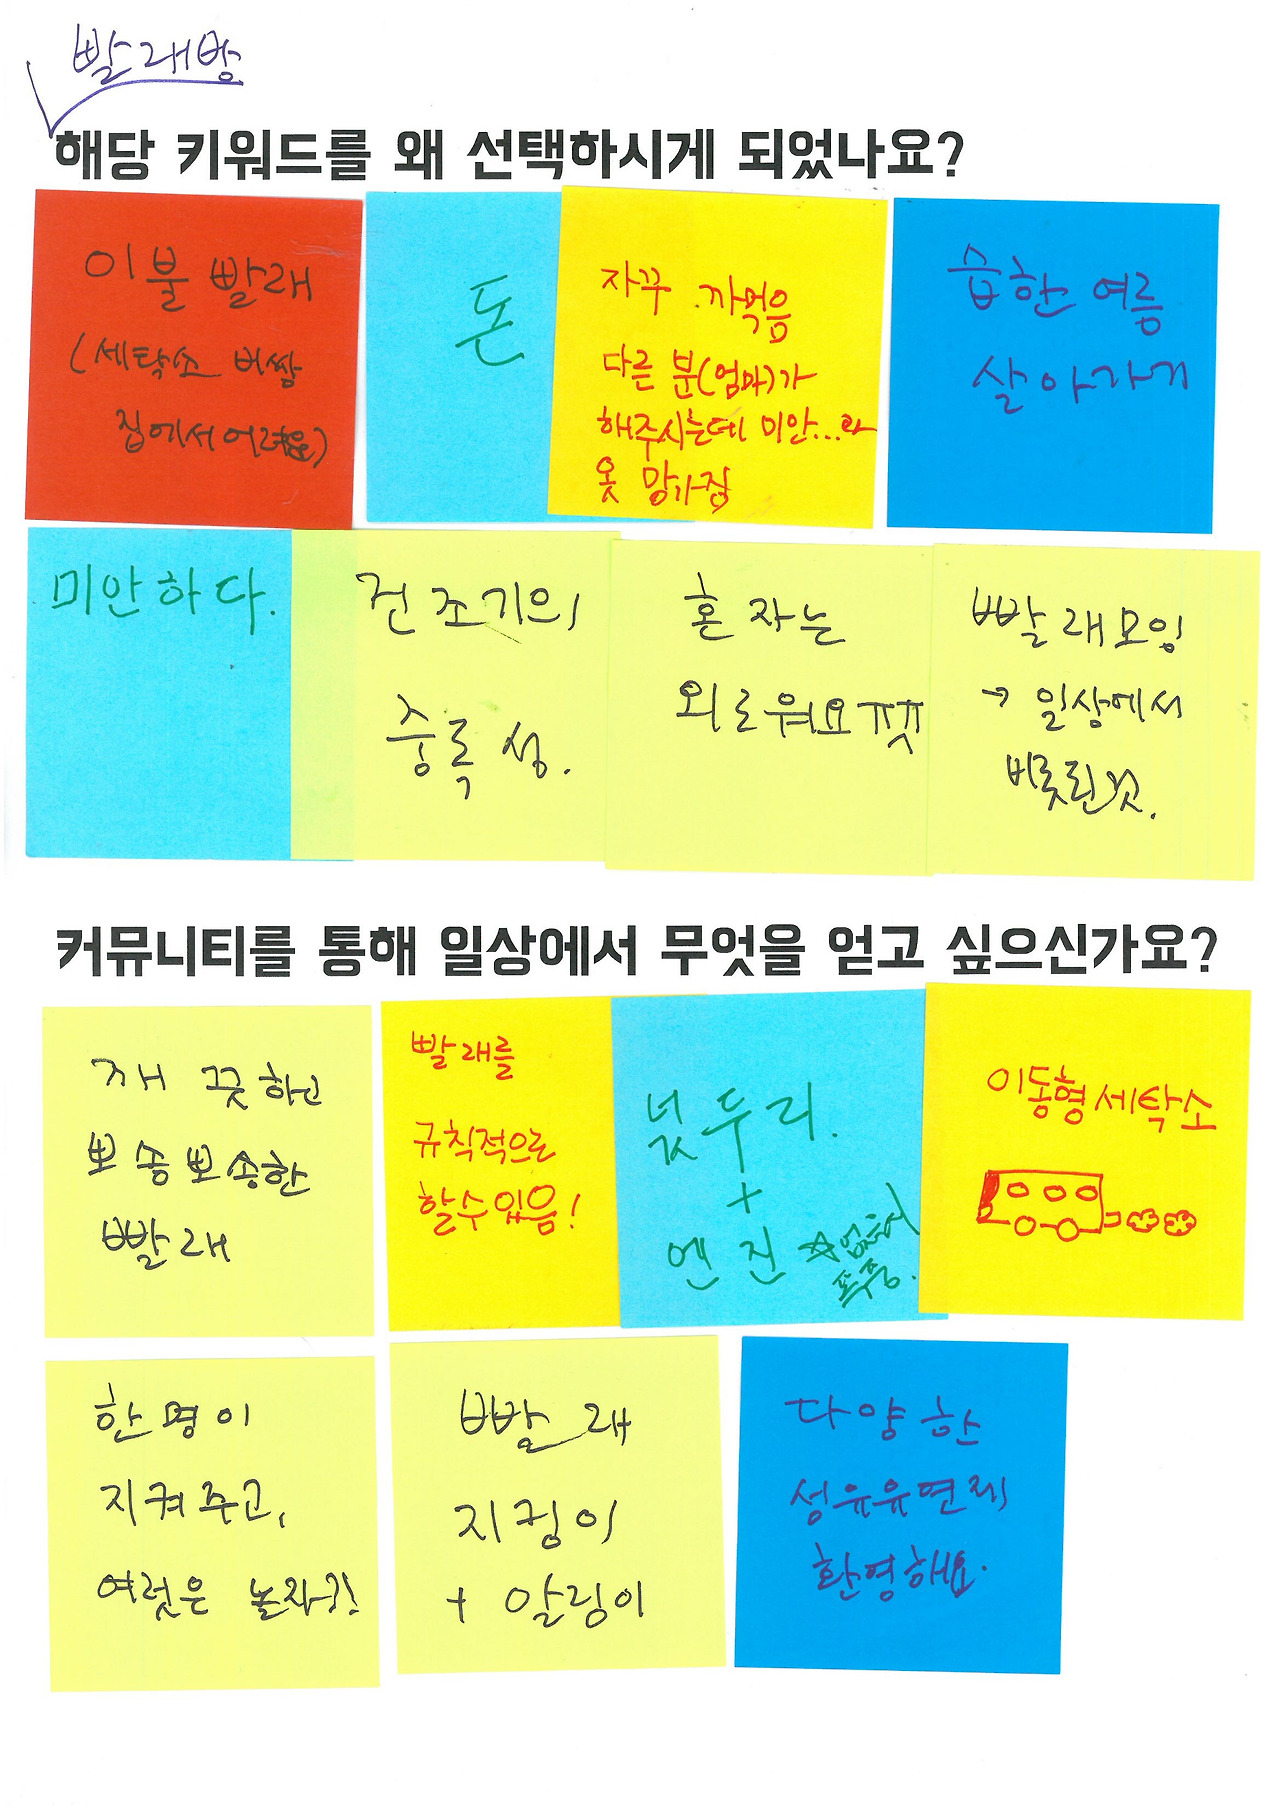 빨래방
해당 키워드를 왜 선택하시게 되었나요?
이불 빨래
(세탁소 비쌈
집에서 어려움)
돈
자꾸 까먹음
다른 분(엄마)가
해주시는데 미안...라
옷 망가짐
습한 여름
살아가기
미안하다.
건조기의
중독성.
혼자는
외로워요ㅠㅠ
빨래모임
→ 일상에서
비롯된것.
커뮤니티를 통해 일상에서 무엇을 얻고 싶으신가요?
깨끗하고
뽀송뽀송한
빨래
빨래를
규칙적으로
할수있음!
넋두리.
+
엔진 ☆
이동형세탁소
한명이
지켜주고,
여럿은 놀자구!
빨래
지킴이
+ 알림이
다양한
섬유유연제
환영해요.